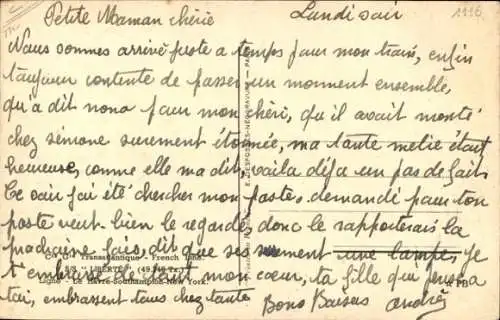 Petite Maman chérie Lundi soir 1116
Nous sommes arrivé juste a temps pour mon train, enfin
toujour contente de passer un moment ensemble,
qu'a dit nona pour mon chéri, qu'il avait monté
chez simone surement étonnée, ma tante melie était
heureuse, comme elle ma dit, voila déja un pas de fait.
Ce soir j'ai été chercher mon poste, demandé pour ton
poste veut bien le regarder donc le rapporterais la
prochaine fois, dit que surement une lampe, je
t'embrasse de tout mon coeur, ta fille qui pense a
toi, embrassent tous chez tante
Bons Baisers andrée
E. DESFOSSES-NEOGRAVURE - PARIS
Cie Gle Transatlantique - French Line
S/S "LIBERTÉ"
Ligne - Le Havre-Southampton-New York.